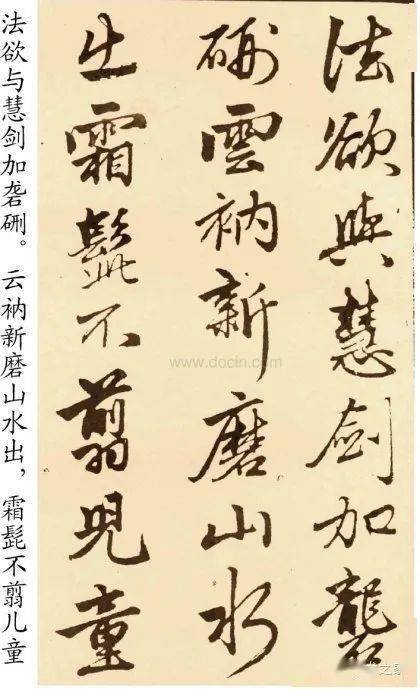 法欲與慧劍加礱
硎雲衲新磨山水
出霜髭不翦兒童
法欲与慧剑加砻硎。云衲新磨山水出，霜髭不翦儿童
www.docin.com